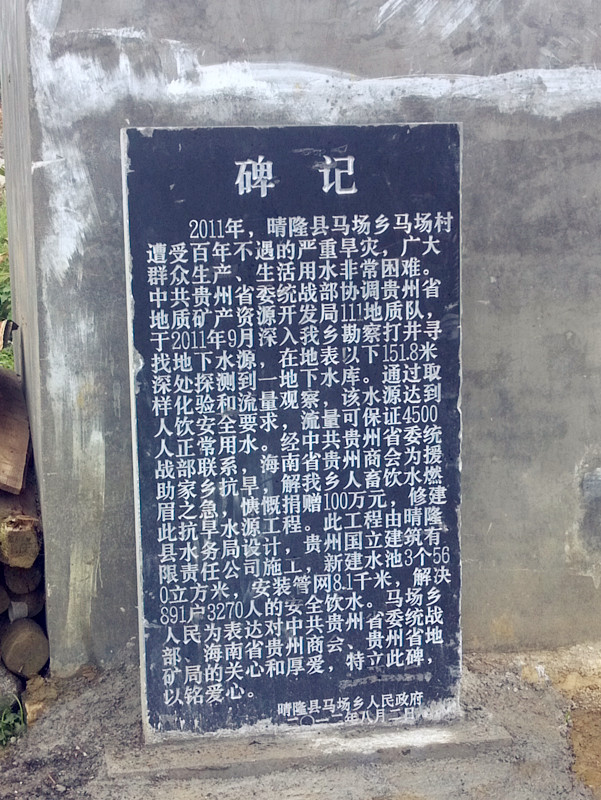 碑 记
2011年，晴隆县马场乡马场村
遭受百年不遇的严重旱灾，广大
群众生产、生活用水非常困难。
中共贵州省委统战部协调贵州省
地质矿产资源开发局111地质队，
于2011年9月深入我乡勘察打井寻
找地下水源，在地表以下151.8米
深处探测到一地下水库。通过取
样化验和流量观察，该水源达到
人饮安全要求，流量可保证4500
人正常用水。经中共贵州省委统
战部联系，海南省贵州商会为援
助家乡抗旱，解我乡人畜饮水燃
眉之急，慷慨捐赠100万元，修建
此抗旱水源工程。此工程由晴隆
县水务局设计，贵州国立建筑有
限责任公司施工，新建水池3个56
0立方米，安装管网8.1千米，解决
891户3270人的安全饮水。马场乡
人民为表达对中共贵州省委统战
部、海南省贵州商会、贵州省地
矿局的关心和厚爱，特立此碑，
以铭爱心。
晴隆县马场乡人民政府
二〇一二年八月二日